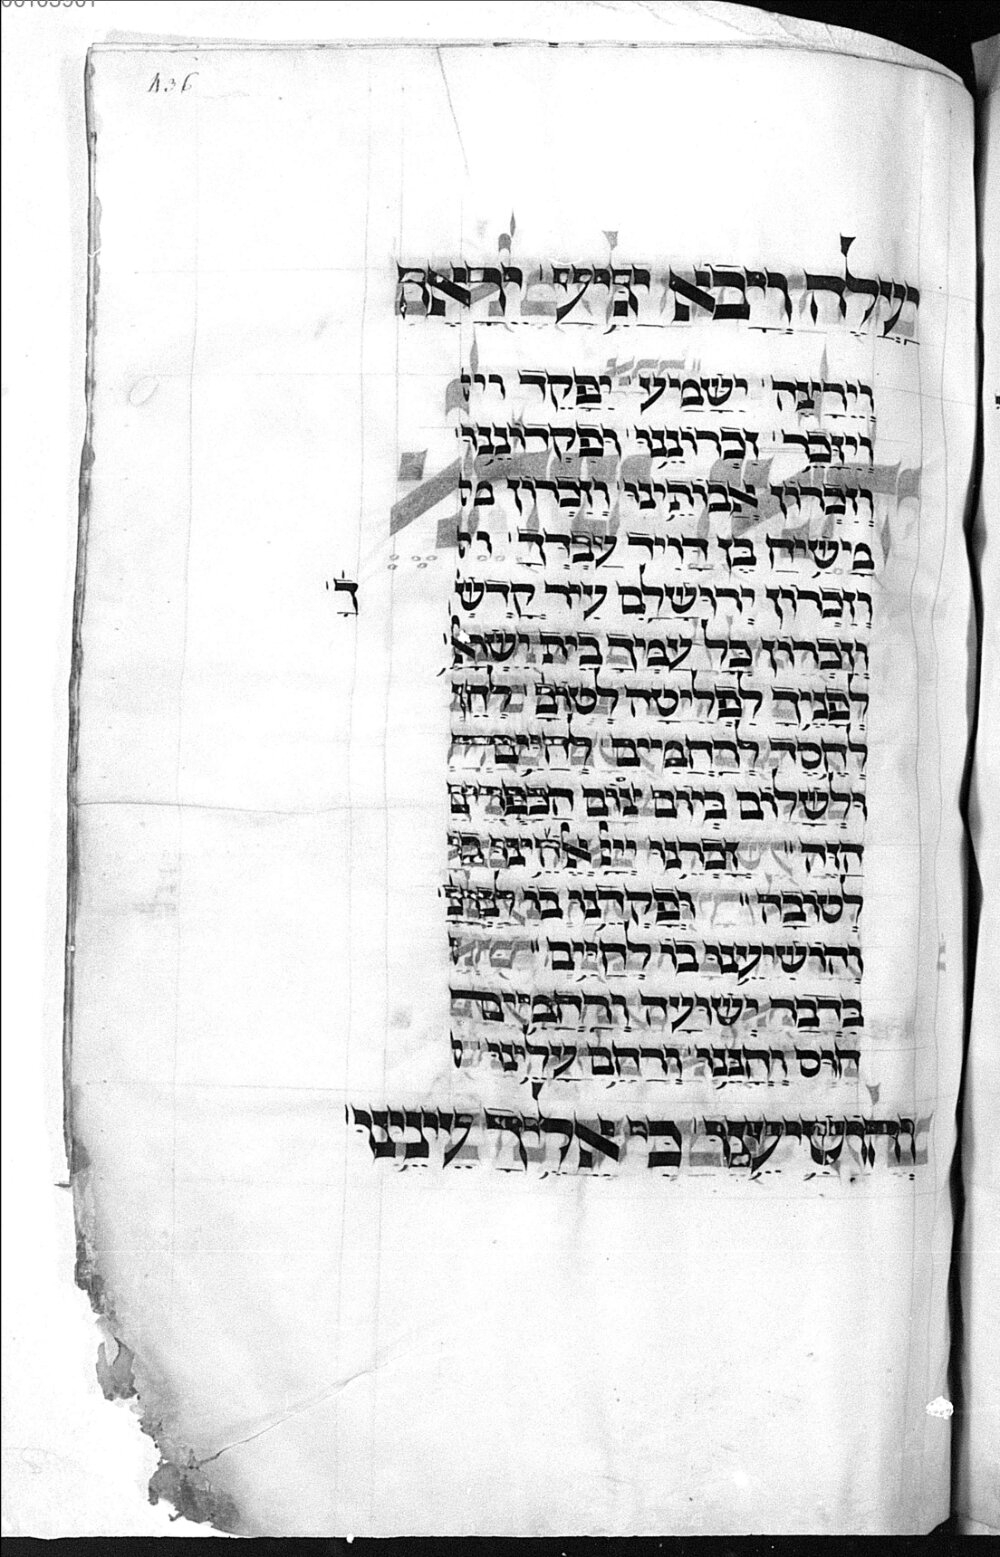 436
יעלה ויבא יגיע יראה
וירצה ישמיע יפקד וי
ויזכר זכרוננו ופקדוננו
וזכרון אבותינו וזכרון מ
משיח בן דויד עבדך ו
וזכרון ירושלם עיר קדש ך
וזכרון כל עמך בית ישרא
לפניך לפליטה לטוב לחן
לחסד לרחמים לחיים
ולשלום ביום צום הכפורים
הזה זכרנו ייי אלהינו בו
לטובה ופקדנו בו לברכ
והושיענו בו לחיים
בדבר ישועה ורחמים
חוס וחננו ורחם עלינו
והושיענו כי אליך עינינו